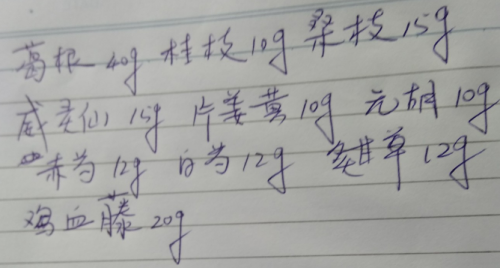 葛根 40g 桂枝 10g 桑枝 15g
威灵仙 15g 片姜黄 10g 元胡 10g
赤芍 12g 白芍 12g 炙甘草 12g
鸡血藤 20g